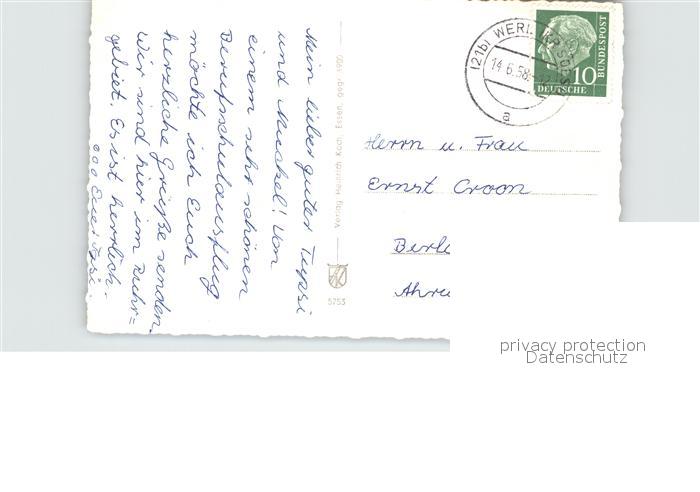 Mein lieber guter Tupsi
und Muckel! Von
einem sehr schönen
Berufsschulausflug
möchte ich Euch
herzliche Grüße senden.
Wir sind hier im Ruhr=
gebiet. Es ist herrlich.
Eure
Verlag Heinrich Koch, Essen, gegr.
5753
(21b) WERL
14.6.58
a
10
DEUTSCHE
BUNDESPOST
Herrn u. Frau
Ernst Croon
Berl
Ahre
privacy protection
Datenschutz